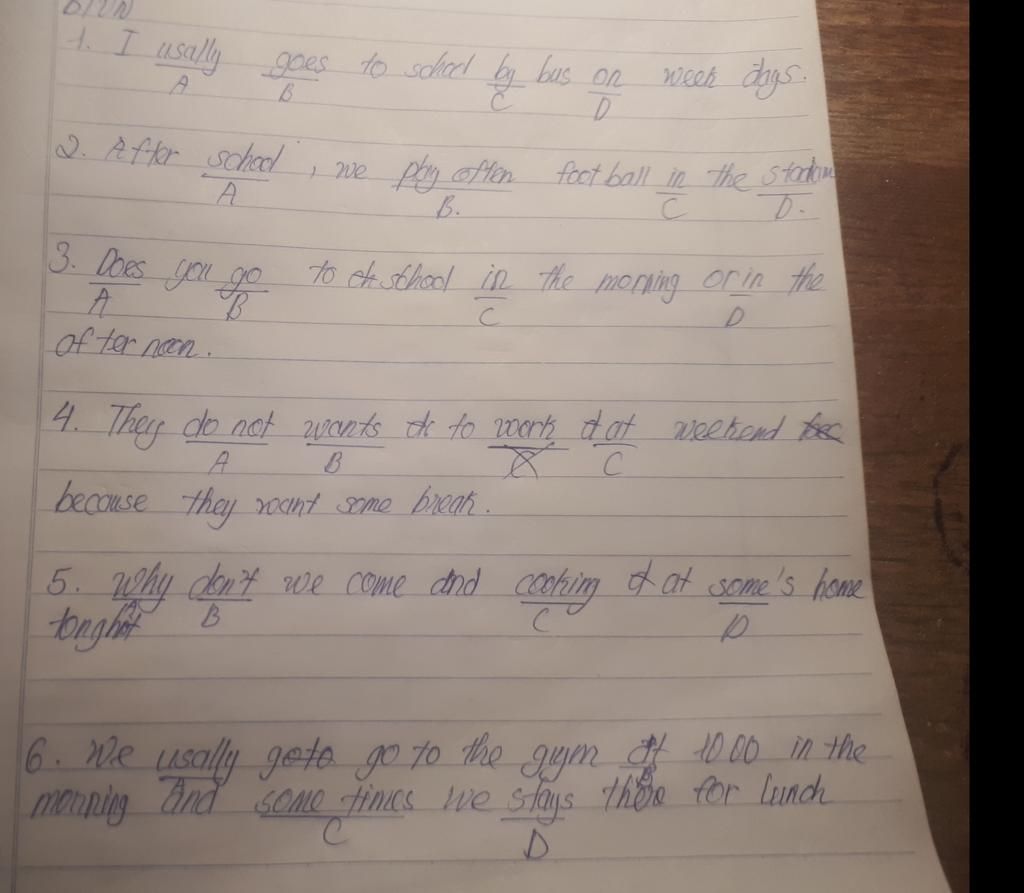 1. I usally goes to school by bus on week days.
A B C D
2. After school, we play often foot ball in the stadium
A B. C D.
3. Does you go to school in the morning or in the
A B C D
after noon.
4. They do not wants to work at weekend
A B C
because they want some break.
5. Why don't we come and cooking at some's home
A B C D
6. We usally go to the gym at 10 00 in the
A B
morning and some times we stays there for lunch
C D